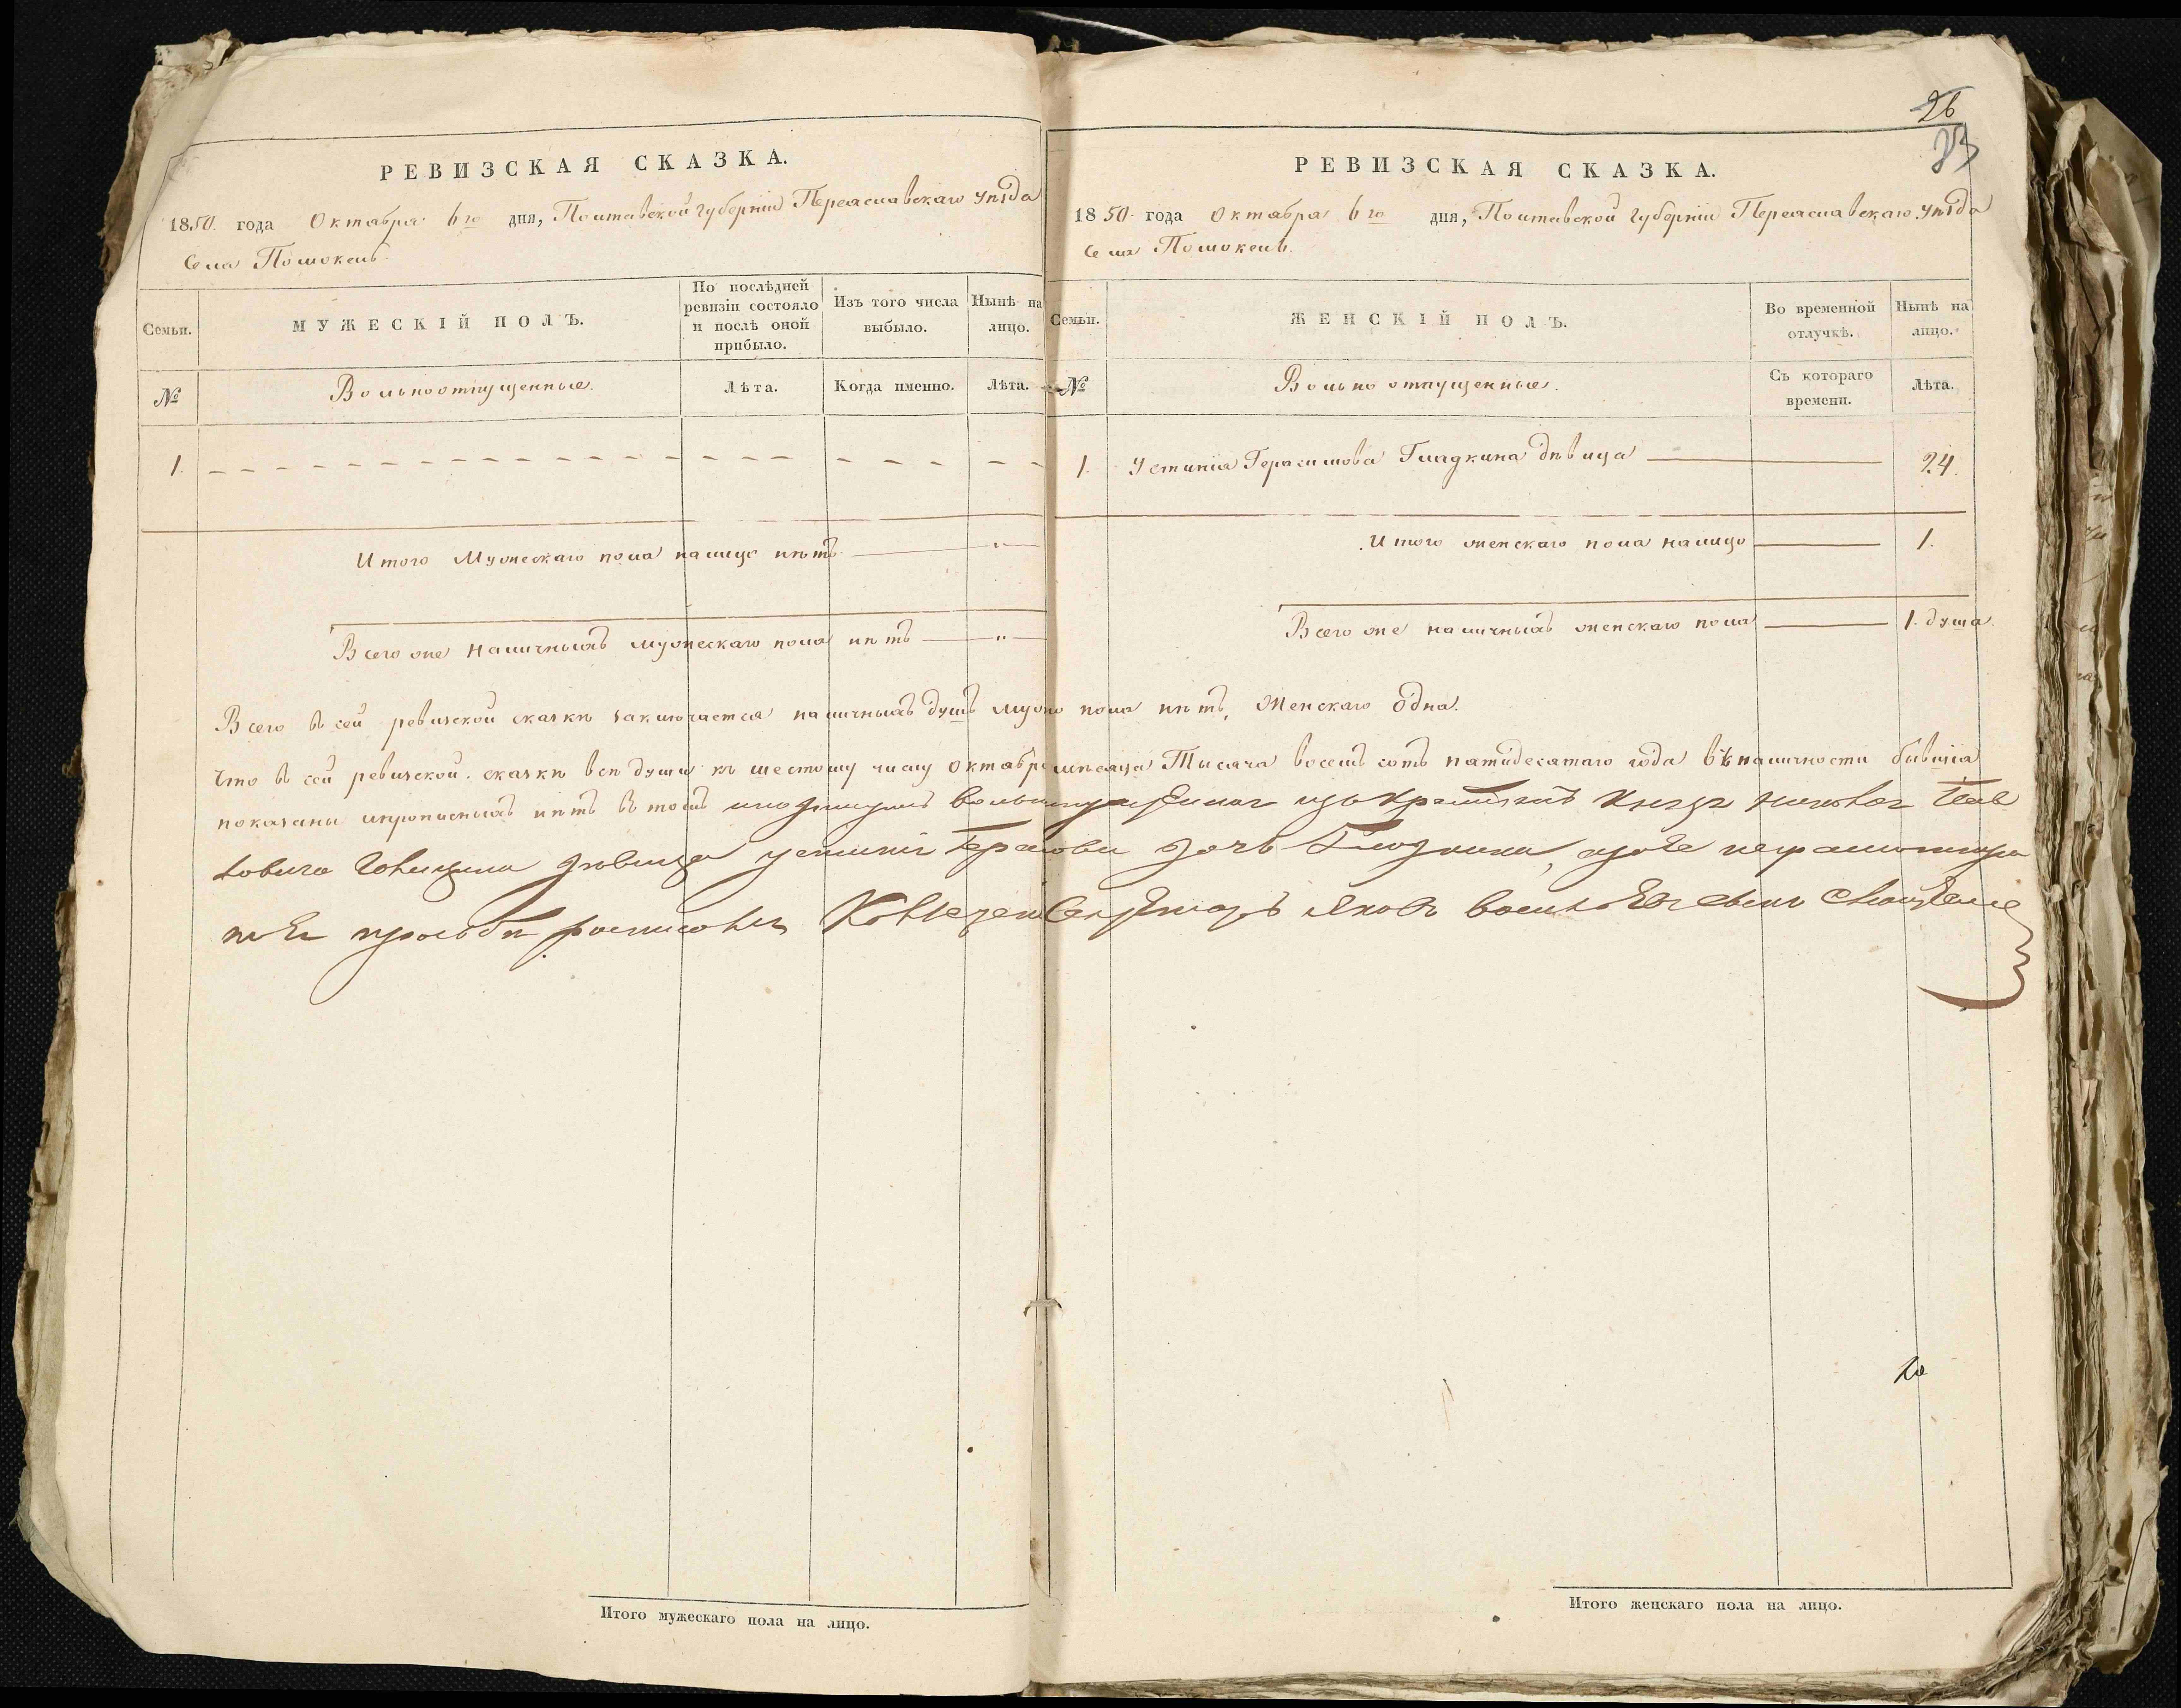 РЕВИЗСКАЯ СКАЗКА.
1850. года Октября 6го дня, Полтавской губерніи Переяславскаго уѣзда
села Положень.
Семьи.
МУЖЕСКІЙ ПОЛЪ.
По послѣдней
ревизіи состояло
и послѣ оной
прибыло.
Изъ того числа
выбыло.
Нынѣ на
лицо.
№
Вольноотпущенные.
Лѣта.
Когда именно.
Лѣта.
1.
Итого Мужескаго пола налицо нѣтъ — "
Всего же наличныхъ мужескаго пола нѣтъ — "
26
РЕВИЗСКАЯ СКАЗКА.
1850. года Октября 6го дня, Полтавской губерніи Переяславскаго уѣзда
села Положень.
Семьи.
ЖЕНСКІЙ ПОЛЪ.
Во временной
отлучкѣ.
Нынѣ на
лицо.
№
Вольноотпущенные.
Съ котораго
времени.
Лѣта.
1. Устинія Герасимова Гладкина дѣвица — 24.
Итого женскаго пола налицо — 1.
Всего же наличныхъ женскаго пола — 1. душа.
Всего въ сей ревизской сказкѣ заключается наличныхъ душъ муже пола нѣтъ, Женскаго одна.
Что въ сей ревизской сказкѣ всѣ души къ шестому числу Октября мѣсяца Тысяча восемь сотъ пятидесятаго года въ наличности бывшія
показаны и прописныхъ нѣтъ въ томъ князя
дѣвица дочь Гладкина,
просьбѣ росписался
Итого мужескаго пола на лицо.
Итого женскаго пола на лицо.